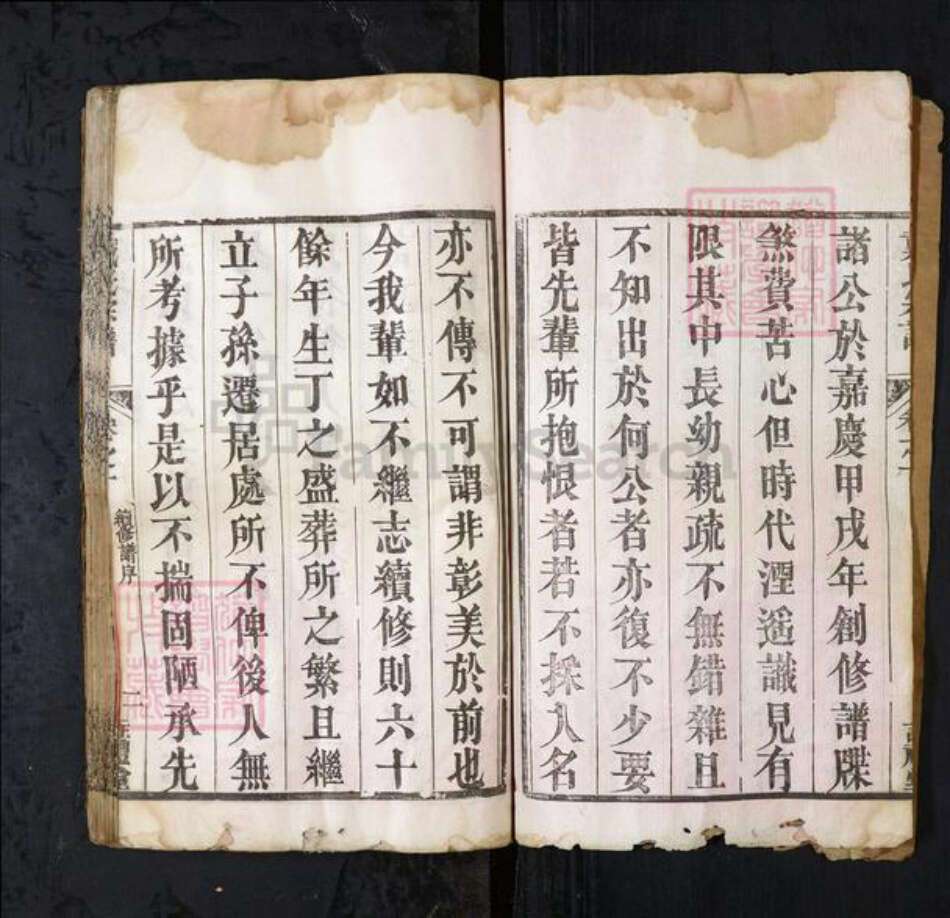 諸公於嘉慶甲戌年創修譜牒
煞費苦心但時代湮遥識見有
限其中長幼親疏不無錯雜且
不知出於何公者亦復不少要
皆先輩所抱恨者若不採入名
亦不傳不可謂非彰美於前也
今我輩如不繼志續修則六十
餘年生丁之盛葬所之繁且繼
立子孫遷居處所不俾後人無
所考據乎是以不揣固陋承先
續修譜序
二
FamilySearch